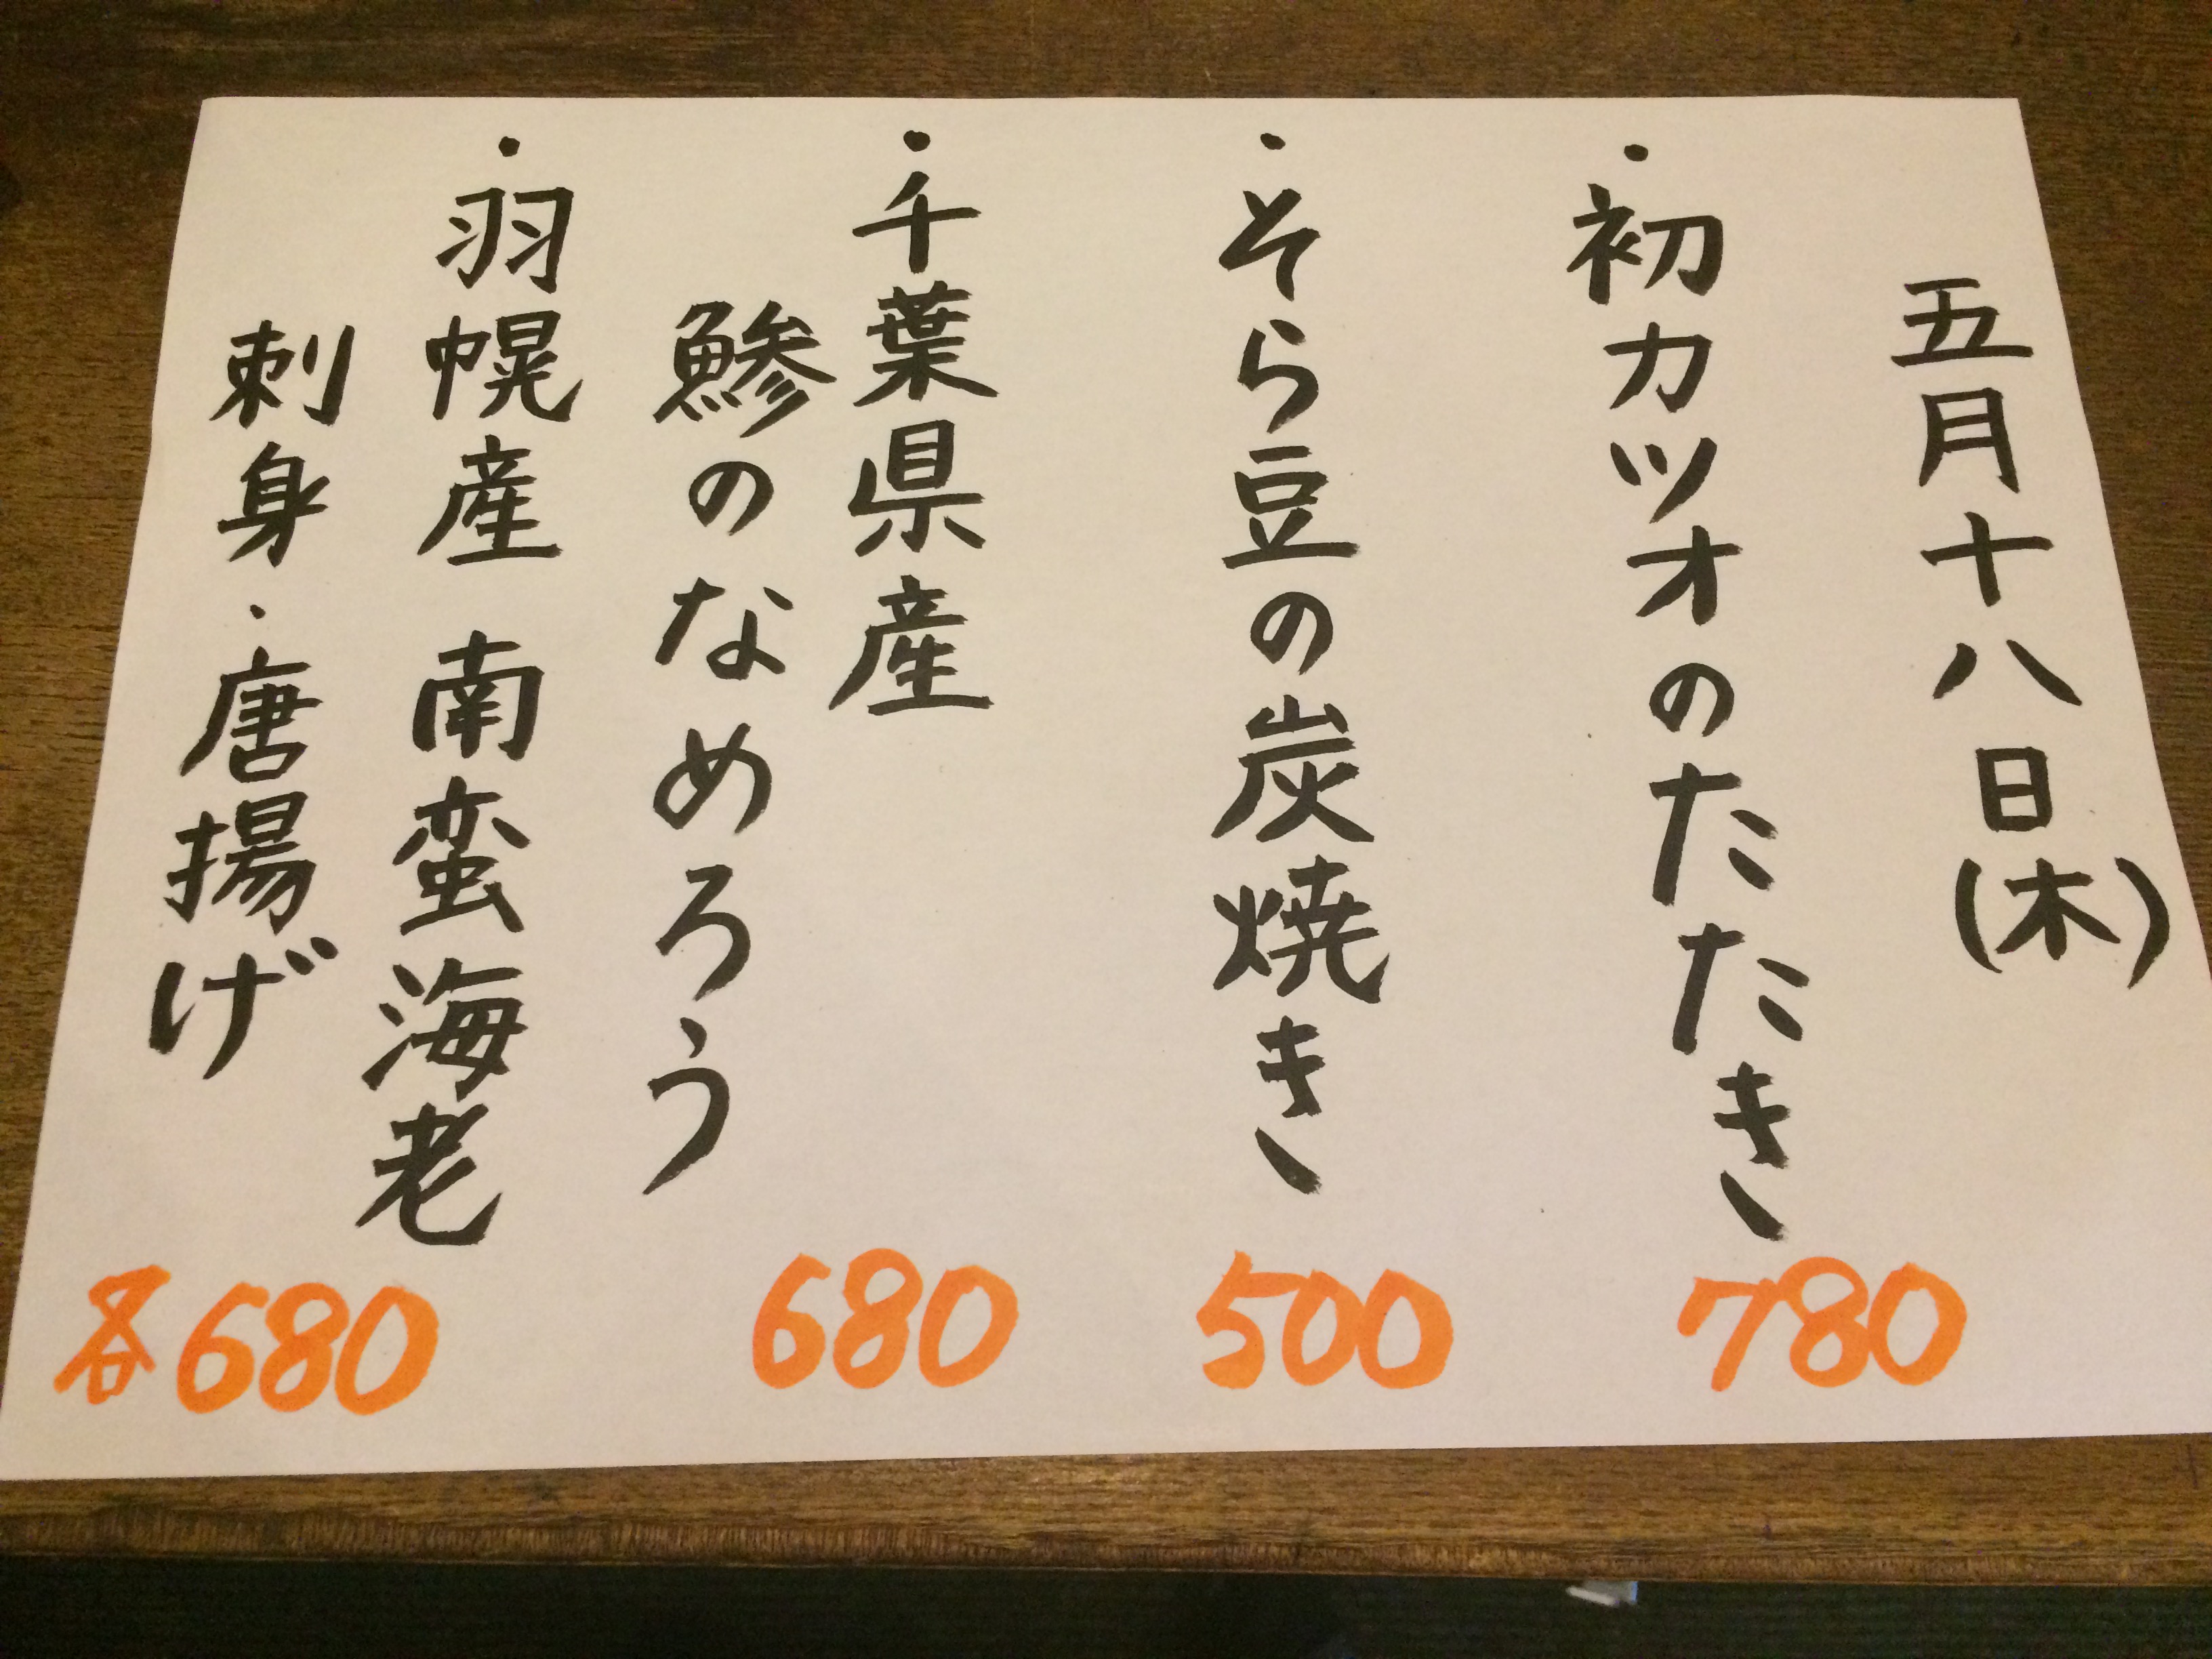 五月十八日(木)
・初カツオのたたき
780
・そら豆の炭焼き
500
・千葉県産
鯵のなめろう
680
・羽幌産 南蛮海老
刺身・唐揚げ
各680